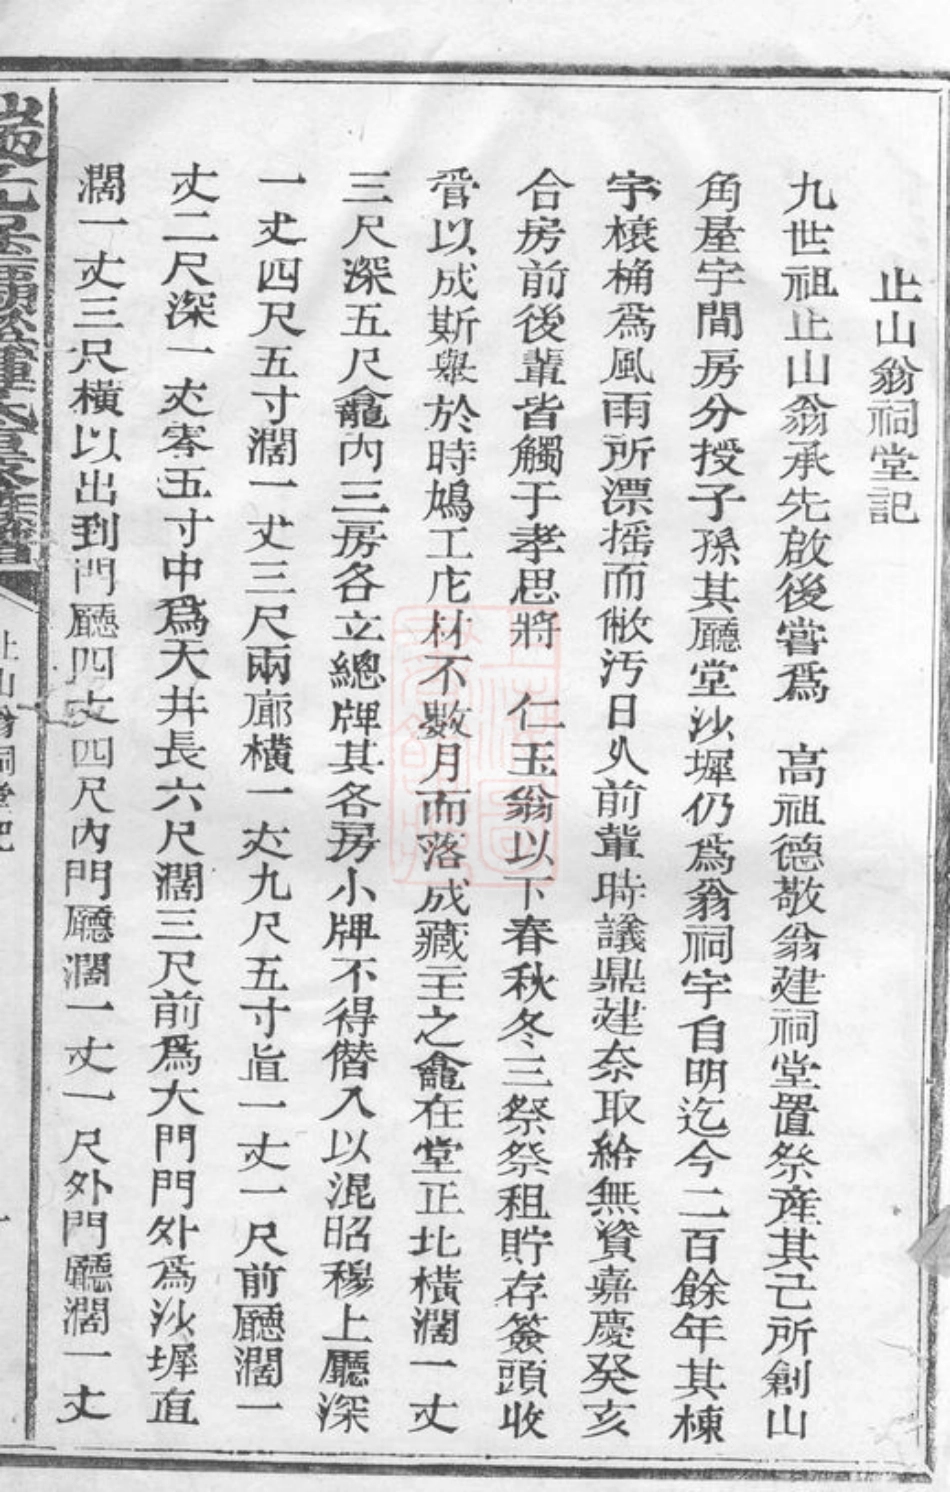 止山翁祠堂記
九世祖止山翁承先啟後嘗爲　高祖德敬翁建祠堂置祭產其己所創山
角屋宇間房分授子孫其廳堂沙墀仍爲翁祠宇自明迄今二百餘年其棟
宇榱桷爲風雨所漂摇而敝汚日乆前輩時議鼎建奈取給無資嘉慶癸亥
合房前後輩皆觸于孝思將　仁玉翁以下春秋冬三祭祭租貯存簽頭收
管以成斯舉於時鳩工庀材不數月而落成藏主之龕在堂正北橫濶一丈
三尺深五尺龕內三房各立總牌其各房小牌不得僭入以混昭穆上廳深
一丈四尺五寸濶一丈三尺兩廊橫一丈九尺五寸直一丈一尺前廳濶一
丈二尺深一丈零五寸中爲天井長六尺濶三尺前爲大門門外爲沙墀直
濶一丈三尺橫以出到門廳四丈四尺內門廳濶一丈一尺外門廳濶一丈
止山翁祠堂記